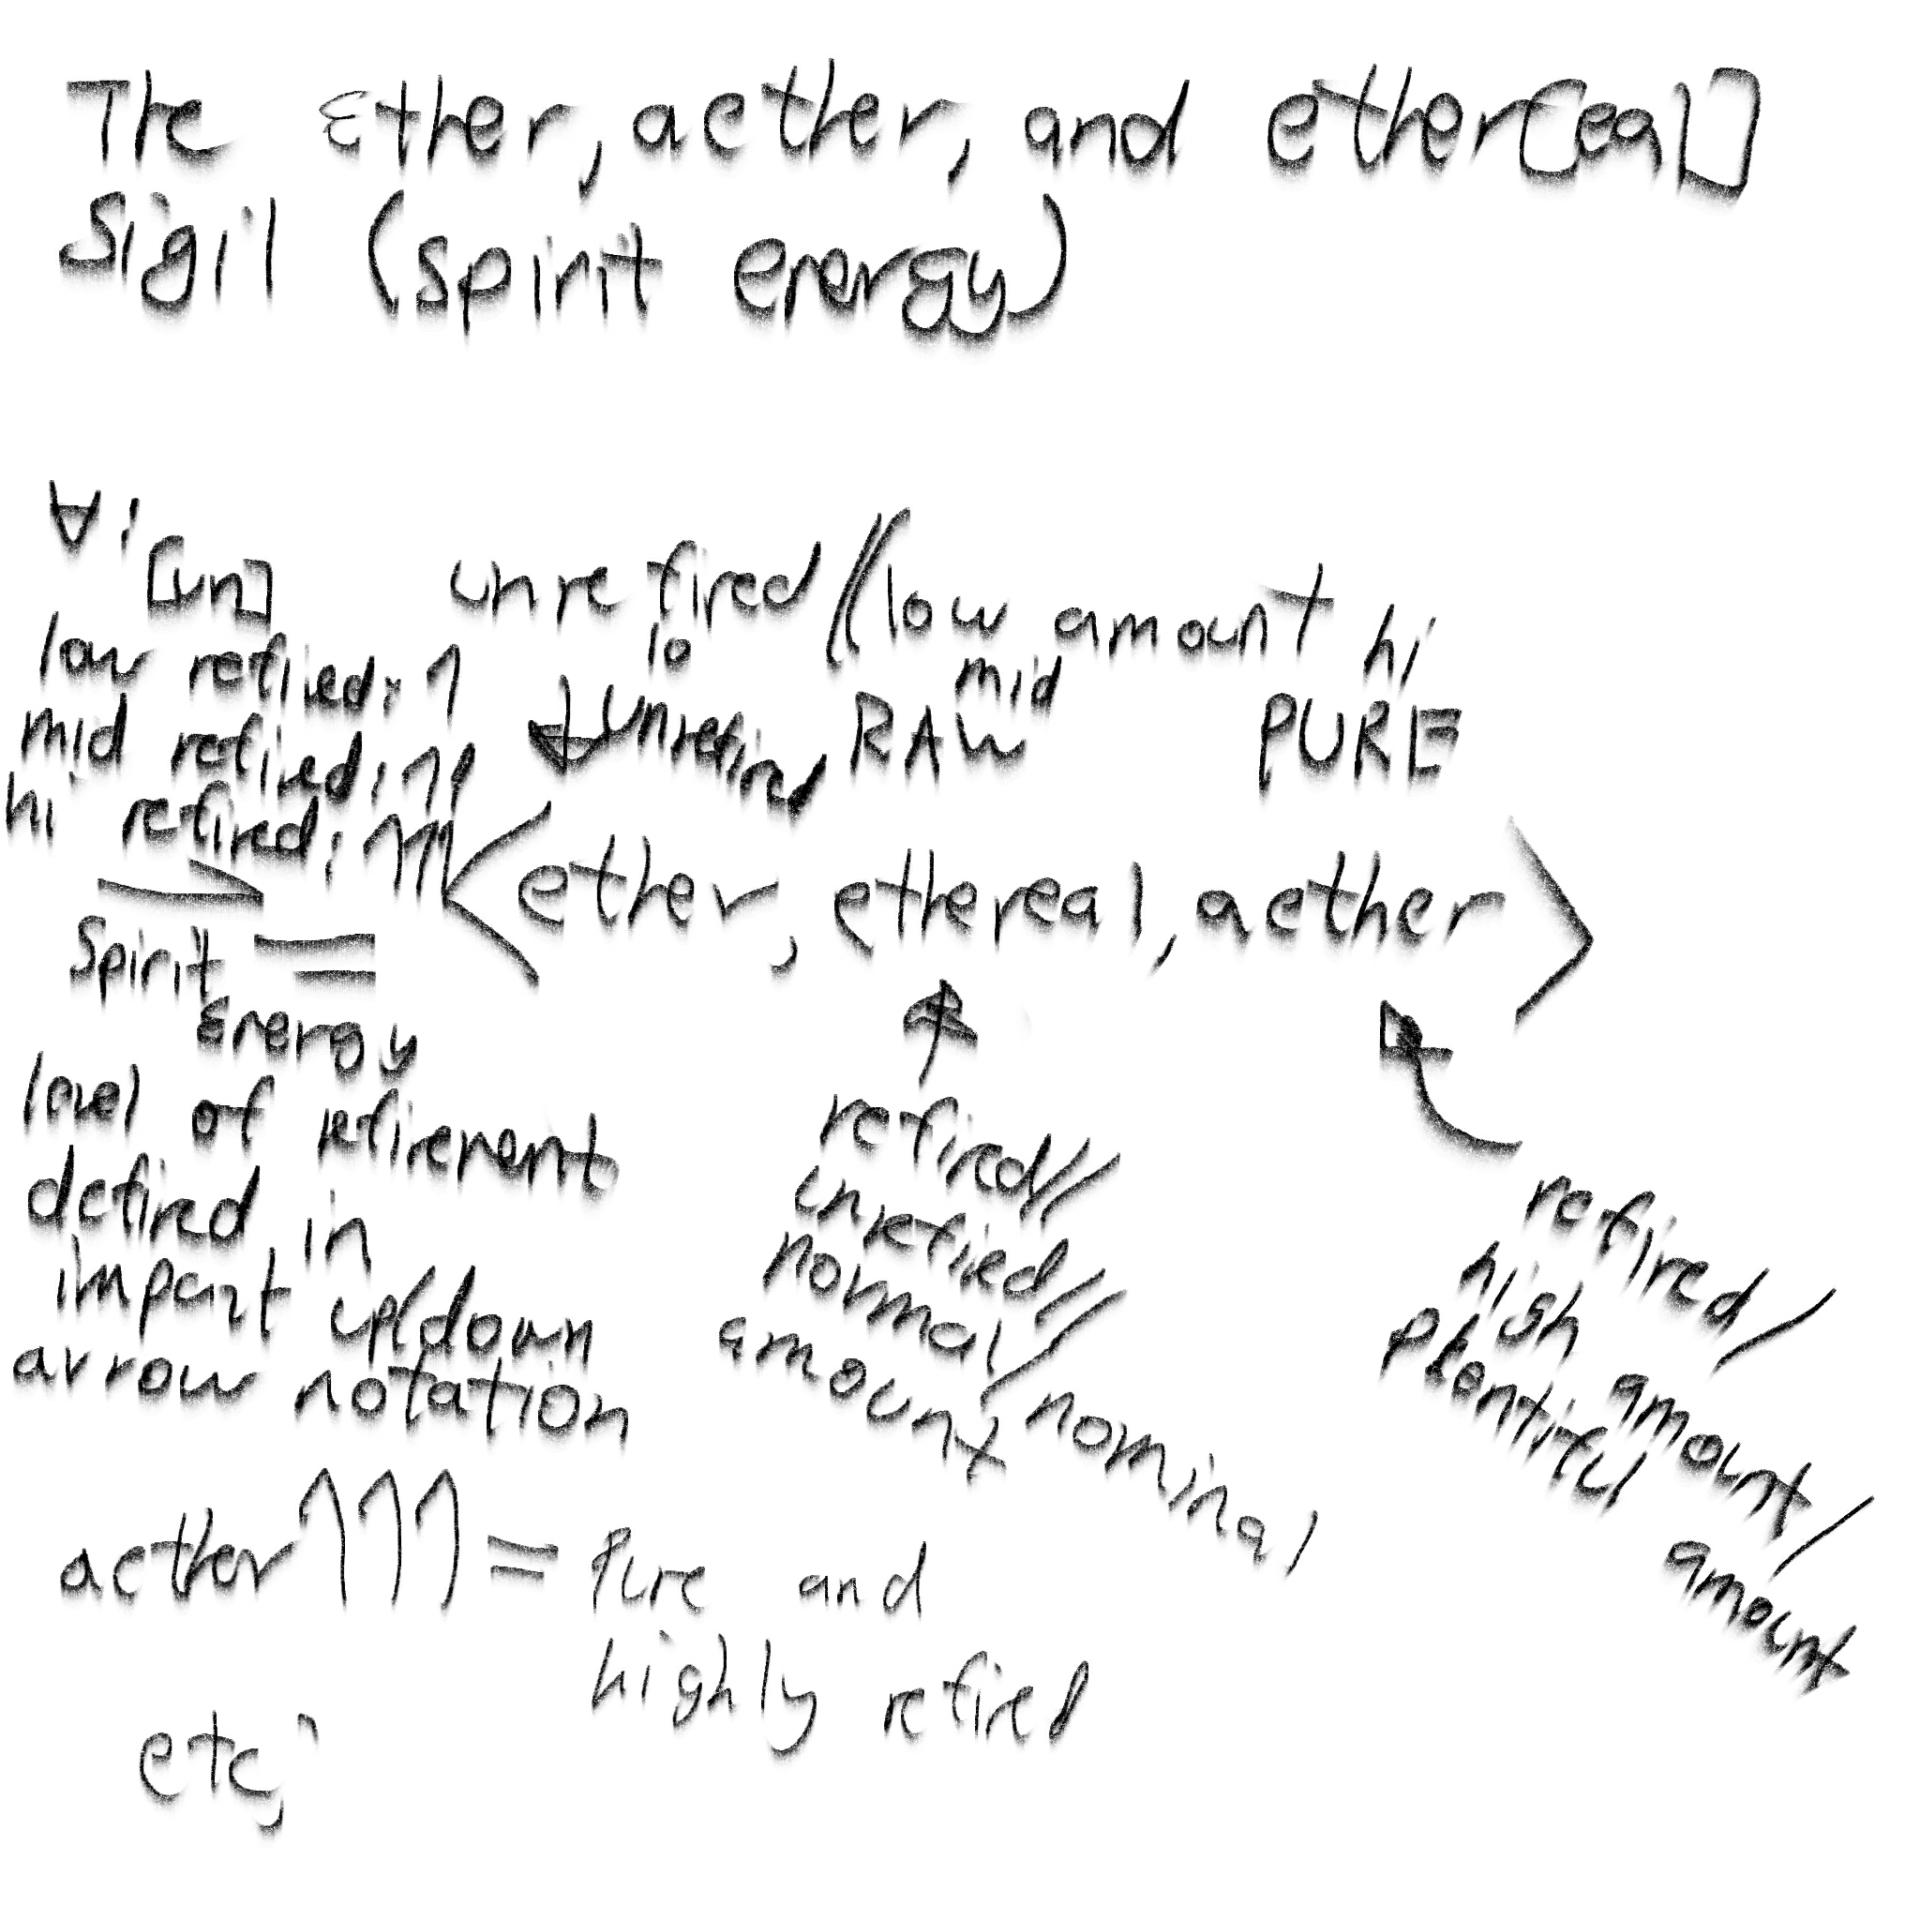 The Ether, aether, and ether[eal]
Sigil (spirit energy)
∀i
[un]
unrefined//(low amount
low refined: ↑
lo
mid
hi
mid refined: ↑↑
unrefined
RAW
PURE
hi refined: ↑↑↑
Spirit Energy = <ether, ethereal, aether>
level of refinement
defined in
impart up/down
arrow notation
refined//
unrefined//
normal/nominal
amount
refined/
high amount/
plentiful amount
aether↑↑↑ = Pure and
highly refined
etc;